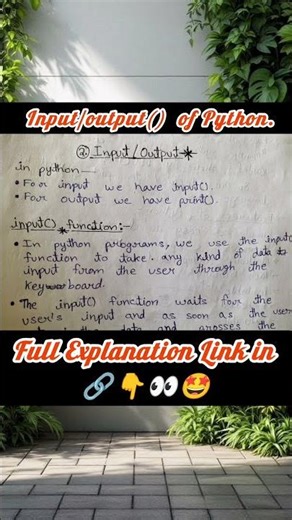 Input/output() of Python.
② Input/Output
in python—
• For input we have input().
• For output we have print().
input() function:-
• In python programs, we use the input
function to take any kind of data to
input from the user through the
Keyboard.
• The input() function waits for the
user's input and as soon as the user
data and presses the
Full Explanation Link in
🔗👇👀🤩